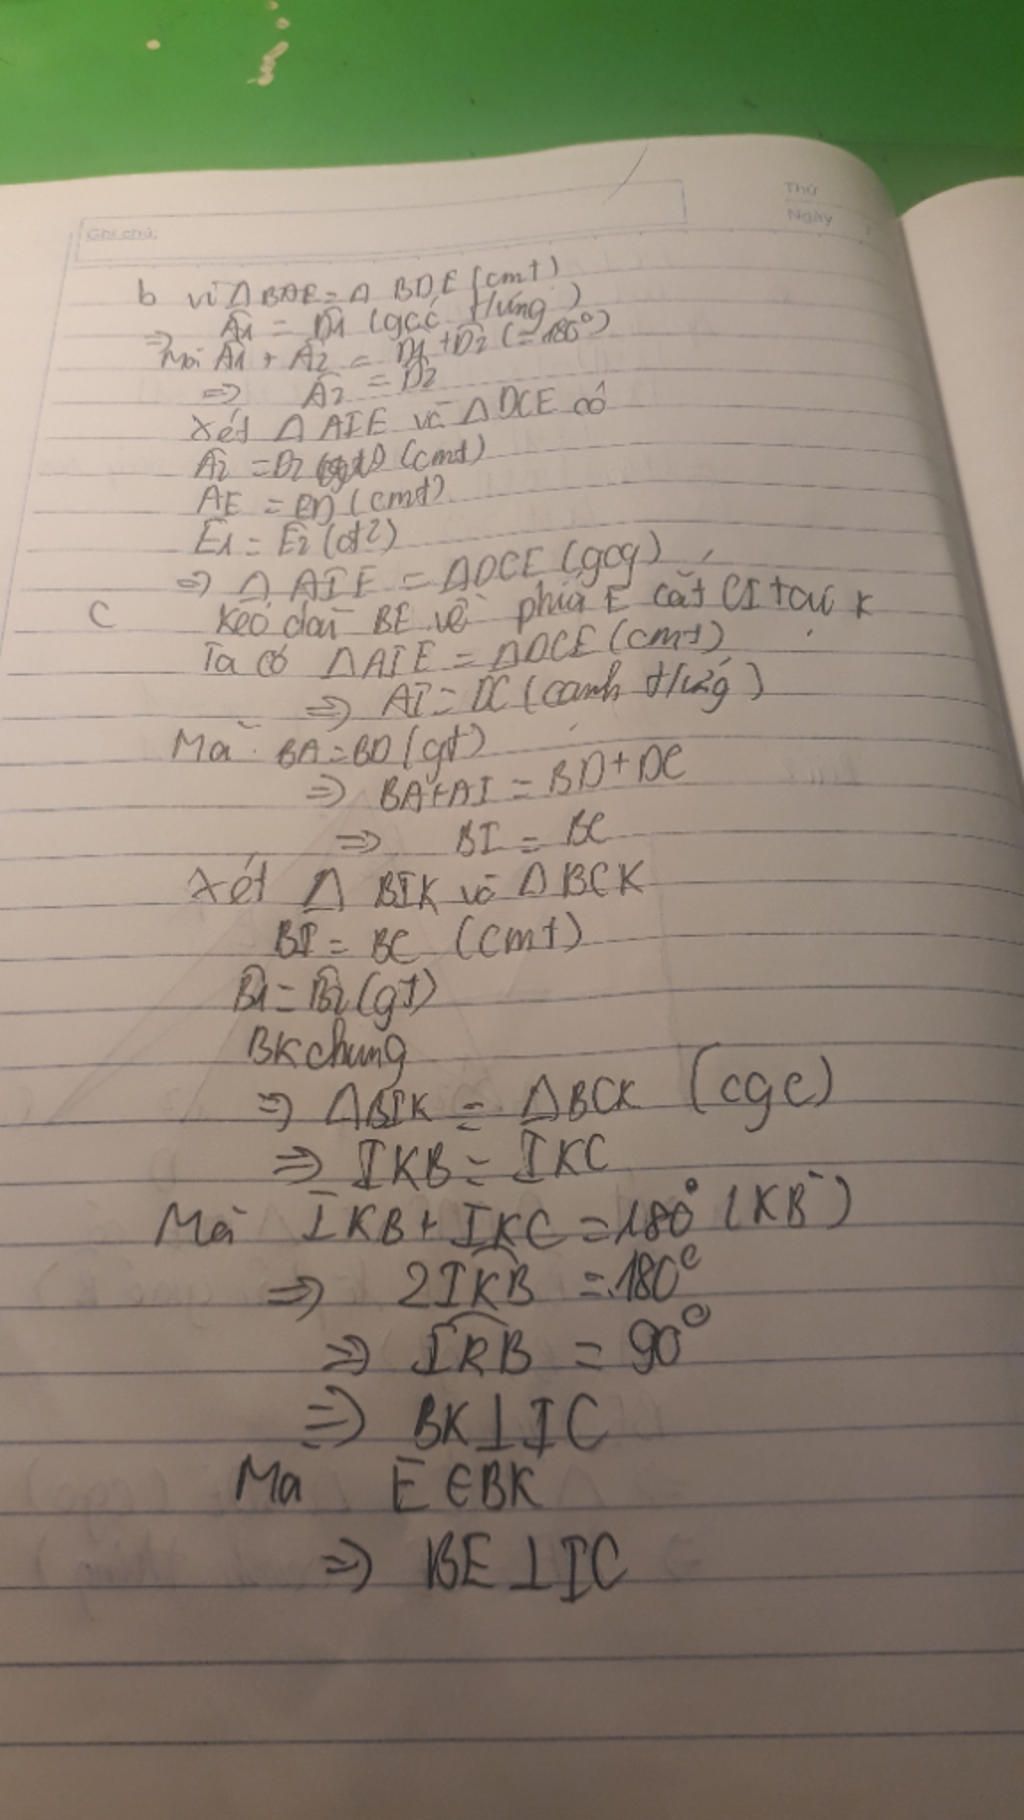 Thứ
Ngày
Ghi chú:
b vì △BAE = △ BDE (cmt)
⇒ Â1 = D̂1 (góc t/ứng)
Mà Â1 + Â2 = D̂1 + D̂2 (=180°)
⇒ Â2 = D̂2
Xét △ AIE và △ DCE có
Â2 = D̂2 (cmt)
AE = ED (cmt)
Ê1 = Ê2 (đ²)
⇒ △ AIE = △DCE (gcg)
C kéo dài BE về phía E cắt CI tại K
Ta có △AIE = △DCE (cmt)
⇒ AI = DC (cạnh t/ứng)
Mà BA = BD (gt)
⇒ BA+AI = BD+DC
⇒ BI = BC
Xét △ BIK và △BCK
BI = BC (cmt)
B̂1 = B̂2 (gt)
BK chung
⇒ △BIK = △BCK (cgc)
⇒ IKB = IKC
Mà IKB + IKC = 180° (KB)
⇒ 2IKB = 180°
⇒ IKB = 90°
⇒ BK⊥IC
Ma E ∈ BK
⇒ BE⊥IC